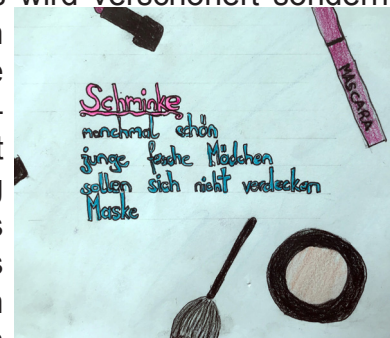 wird verschönert sondern
MASCARA
Schminke
manchmal schön
junge fesche Mädchen
sollen sich nicht verdecken
Maske